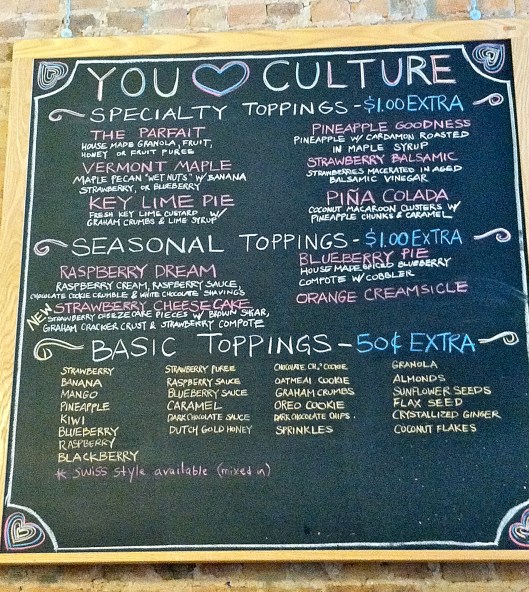 YOU CULTURE
SPECIALTY TOPPINGS - $1.00 EXTRA
THE PARFAIT
HOUSE MADE GRANOLA, FRUIT,
HONEY OR FRUIT PUREE
VERMONT MAPLE
MAPLE PECAN "WET NUTS" W/ BANANA
STRAWBERRY, OR BLUEBERRY
KEY LIME PIE
FRESH KEY LIME CUSTARD W/
GRAHAM CRUMBS & LIME SYRUP
PINEAPPLE GOODNESS
PINEAPPLE W/ CARDAMON ROASTED
IN MAPLE SYRUP
STRAWBERRY BALSAMIC
STRAWBERRIES MACERATED IN AGED
BALSAMIC VINEGAR
PIÑA COLADA
COCONUT MACAROON CLUSTERS W/
PINEAPPLE CHUNKS & CARAMEL
SEASONAL TOPPINGS - $1.00 EXTRA
RASPBERRY DREAM
RASPBERRY CREAM, RASPBERRY SAUCE,
CHOCOLATE COOKIE CRUMBLE & WHITE CHOCOLATE SHAVING'S
NEW STRAWBERRY CHEESECAKE
STRAWBERRY CHEEZECAKE PIECES W/ BROWN SUGAR,
GRAHAM CRACKER CRUST & STRAWBERRY COMPOTE
BLUEBERRY PIE
HOUSE MADE SPICED BLUEBERRY
COMPOTE W/ COBBLER
ORANGE CREAMSICLE
BASIC TOPPINGS - 50¢ EXTRA
STRAWBERRY
BANANA
MANGO
PINEAPPLE
KIWI
BLUEBERRY
RASPBERRY
BLACKBERRY
STRAWBERRY PUREE
RASPBERRY SAUCE
BLUEBERRY SAUCE
CARAMEL
DARK CHOCOLATE SAUCE
DUTCH GOLD HONEY
CHOCOLATE CHIP COOKIE
OATMEAL COOKIE
GRAHAM CRUMBS
OREO COOKIE
DARK CHOCOLATE CHIPS
SPRINKLES
GRANOLA
ALMONDS
SUNFLOWER SEEDS
FLAX SEED
CRYSTALLIZED GINGER
COCONUT FLAKES
* Swiss style available (mixed in)